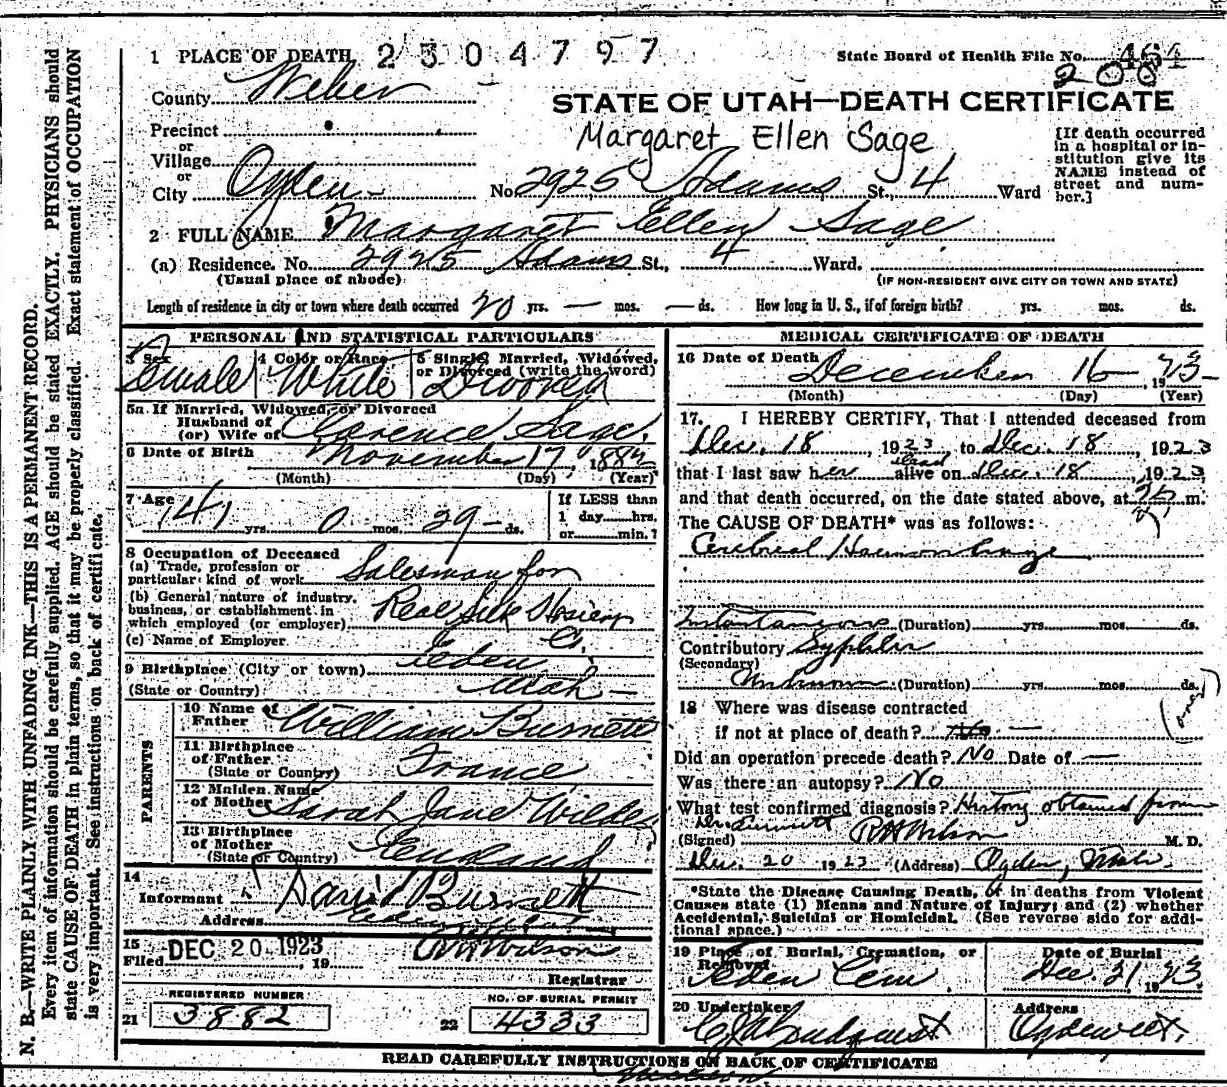 N. B.—WRITE PLAINLY, WITH UNFADING INK—THIS IS A PERMANENT RECORD.
Every item of information should be carefully supplied. AGE should be stated EXACTLY. PHYSICIANS should
state CAUSE OF DEATH in plain terms, so that it may be properly classified. Exact statement of OCCUPATION
is very important. See instructions on back of certificate.
1 PLACE OF DEATH 2304797 State Board of Health File No. 464
200
County Weber
STATE OF UTAH—DEATH CERTIFICATE
Precinct
or
Village
or
City Ogden
Margaret Ellen Sage
[If death occurred
in a hospital or in-
stitution give its
NAME instead of
street and num-
ber.]
No 2925 Adams St., 4 Ward
2 FULL NAME Margaret Ellen Sage
(a) Residence. No. 2925 Adams St., 4 Ward.
(Usual place of abode) (IF NON-RESIDENT GIVE CITY OR TOWN AND STATE)
Length of residence in city or town where death occurred 20 yrs. — mos. — ds. How long in U. S., if of foreign birth? yrs. mos. ds.
PERSONAL AND STATISTICAL PARTICULARS
3 Sex Female
4 Color or Race White
5 Single, Married, Widowed, or Divorced (write the word) Divorced
5a If Married, Widowed, or Divorced
Husband of
(or) Wife of Clarence Sage
6 Date of Birth November 17, 1882
(Month) (Day) (Year)
7 Age 41 yrs. 0 mos. 29 ds.
If LESS than
1 day hrs.
or min.?
8 Occupation of Deceased
(a) Trade, profession or
particular kind of work Salesman for
(b) General nature of industry,
business, or establishment in
which employed (or employer) Real Silk Hosiery
(c) Name of Employer Co.
9 Birthplace (City or town) Eden
(State or Country) Utah
PARENTS
10 Name of
Father William Burnett
11 Birthplace
of Father
(State or Country) France
12 Maiden Name
of Mother Sarah Jane Wilde
13 Birthplace
of Mother
(State or Country) England
14
Informant David Burnett
Address
15
Filed DEC 20 1923, 19 R H Wilson
Registrar
REGISTERED NUMBER
21 3882
NO. OF BURIAL PERMIT
22 4333
MEDICAL CERTIFICATE OF DEATH
16 Date of Death December 16, 1923
(Month) (Day) (Year)
17. I HEREBY CERTIFY, That I attended deceased from
Dec. 18, 1923, to Dec. 18, 1923
dead
that I last saw her alive on Dec. 18, 1923,
and that death occurred, on the date stated above, at m.
The CAUSE OF DEATH* was as follows:
Cerebral Haemorrhage
Instantaneous (Duration) yrs. mos. ds.
Contributory Syphilis
(Secondary)
Unknown (Duration) yrs. mos. ds.
18 Where was disease contracted
if not at place of death?
Did an operation precede death? No Date of —
Was there an autopsy? No
What test confirmed diagnosis? History obtained from
Dr. Burnett
(Signed) R H Wilson M. D.
Dec. 20 1923 (Address) Ogden, Utah
*State the Disease Causing Death, or in deaths from Violent
Causes state (1) Means and Nature of Injury; and (2) whether
Accidental, Suicidal or Homicidal. (See reverse side for addi-
tional space.)
19 Place of Burial, Cremation, or
Removal Eden Cem
Date of Burial
Dec. 21, 1923
20 Undertaker
Address
READ CAREFULLY INSTRUCTIONS ON BACK OF CERTIFICATE